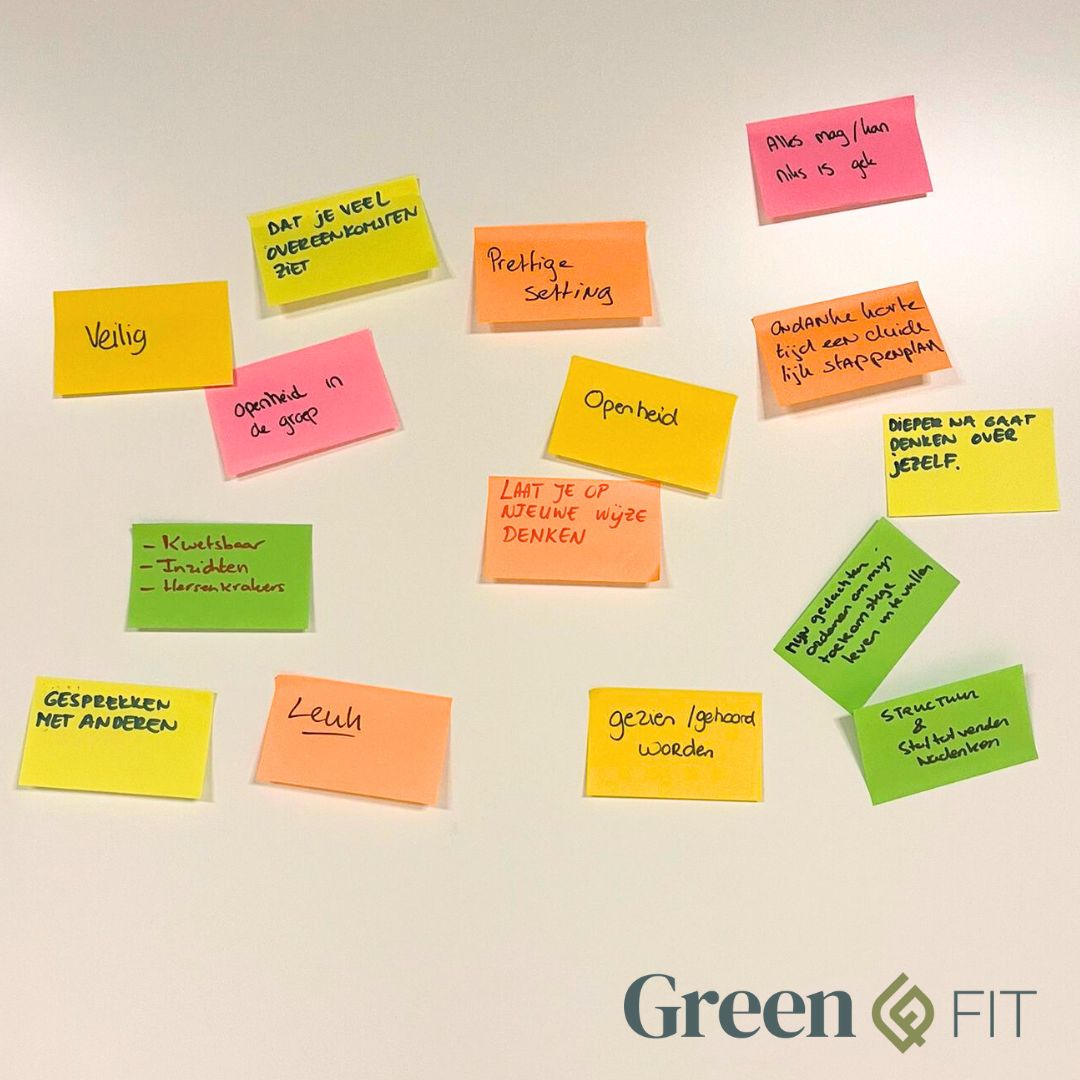 Alles mag/kan
niks is gek
DAT JE VEEL
OVEREENKOMSTEN
ZIET
Prettige
setting
Veilig
Openheid in
de groep
Openheid
Ondanks korte
tijd een duide
lijk stappenplan
DIEPER NA GAAT
DENKEN OVER
JEZELF.
LAAT JE OP
NIEUWE WIJZE
DENKEN
- Kwetsbaar
- Inzichten
- Hersenkrakers
Mijn gedachten
ordenen om mijn
toekomstige
leven in te vullen
GESPREKKEN
MET ANDEREN
Leuk
gezien/gehoord
worden
STRUCTUUR
&
Stof tot verder
Nadenken
Green FIT